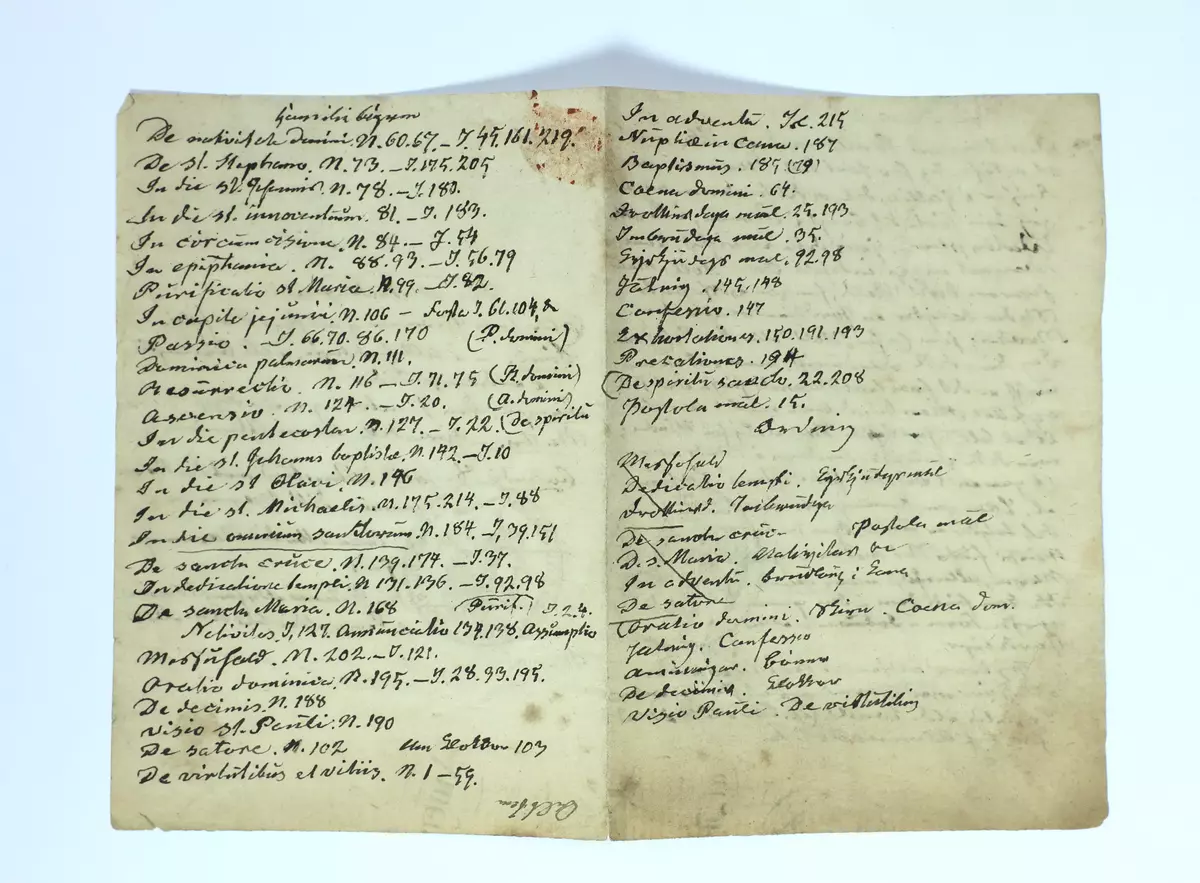 De nativitate domini. N. 60.67. – I. 45.161.219.
De st. Stephano. N. 73. – I. 175.205
In die st. Johannis. N. 78. – I. 180.
In die st. innocentium. 81. – I. 183.
In circumcisione. N. 84. – I. 54
In epiphania. N. 88.93. – I. 56.79
Purificatio st Maria. N. 99. – I. 82.
In capite jejunii. N. 106 – Fasta I. 61.104, &
Passio. – I. 66.70.86.170 (P. domini)
Dominica palmarum. N. 111.
Resurrectio. N. 116 – I. 71.75 (R. domini)
Ascensio. N. 124. – I. 20. (A. domini)
In die pentecosten. N. 127. – I. 22. (De spiritu
In die st. Johannis baptistæ. N. 142. – I. 10
In die st Olavi. N. 146
In die st. Michaelis. N. 175.214. – I. 88
In die omnium sanctorum. N. 184. – I, 39.151
De sancta cruce. N. 139.174. – I. 37.
In dedicatione templi. N 131.136. – I. 92.98
De sancta Maria. N. 168 (Purif.) I. 24.
Nativitas I, 127. Annunciatio 134.138. Assumptio
Messufald. N. 202. – I. 121.
Oratio dominica. N. 195. – I. 28.33.195.
De decimis. N. 188
Visio st. Pauli. N. 190
De satore. N. 102 103
De virtutibus et vitiis. N. 1 – 59.
In adventu. 215
Nuptiæ in Cana. 187
Baptismus. 185 (79)
Coena domini. 64.
Drottinsdaga mál. 25.193
Imbrudaga mál. 35.
Kyrkjudags mál. 92.98
Játning. 145.148
Confessio. 147
Exhortationes. 150.191.193
Precationes. 194
(De spiritu sancto. 22.208
Postola mál. 15.
Messufald
Dedicatio templi. Kyrkjudagsmál
Drottinsd. Imbrudaga
De sancta cruce Postola mál
D. s. Maria.
In adventu. Brudlaup i Kana
De satore
Oratio domini. Skirn. Coena dom.
Jatning. Confessio
De decimis.
Visio Pauli. De virtutibus